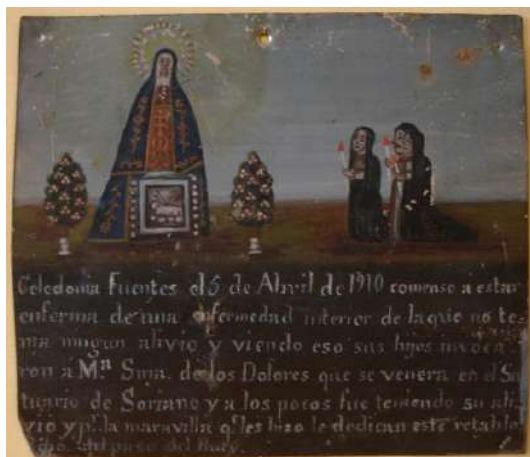 Celedonia Fuentes el 5 de Abril de 1910 comenso a estar
enferma de una enfermedad interior de la que no te-
nia ningun alivio y viendo eso sus hijos invoca
ron a Mª Sma. de los Dolores que se venera en el San
tuario de Soriano y a los pocos fue teniendo su ali
vio y p.r la maravilla q.e les hizo le dedican este retablo
del paso del